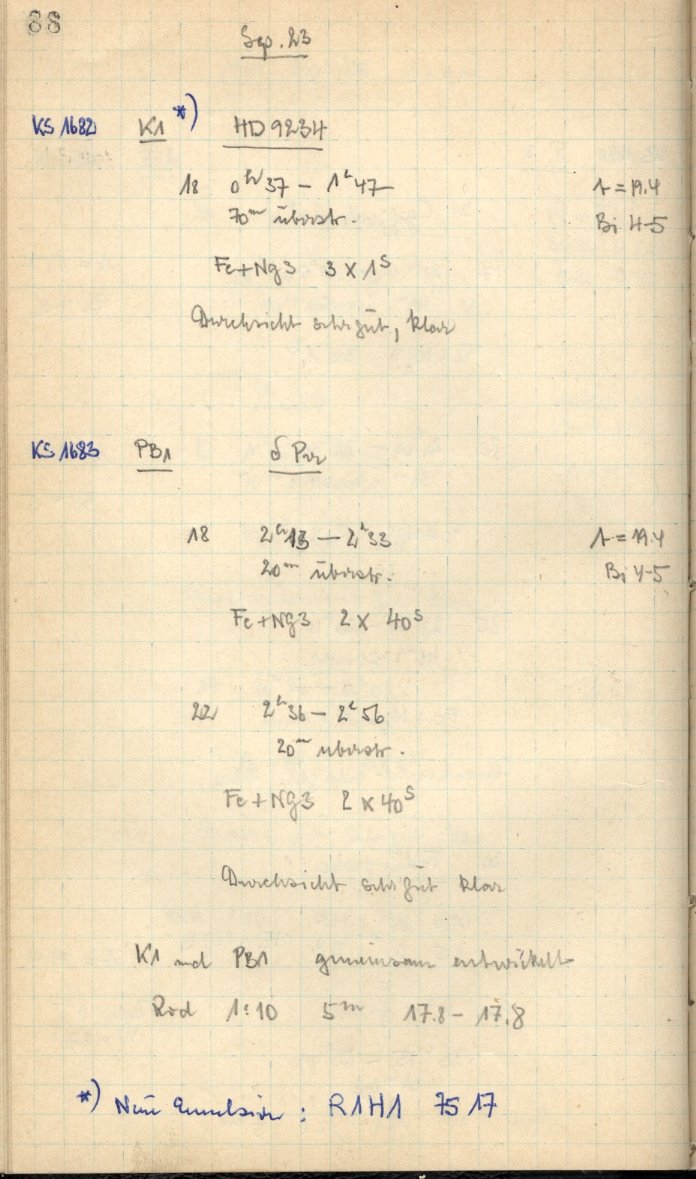 88
Sep. 23
KS 1682 K1 *) HD 9234
18 0h37 – 1h47 t = 19.4
70m überstr. Bi 4-5
Fe+Ng3 3 x 1s
Durchsicht sehr gut, klar
KS 1683 PB1 δ Per
18 2h13 — 2h33 t = 19.4
20m überstr. Bi 4-5
Fe+Ng3 2 x 40s
22 2h36 – 2h56
20m überstr.
Fe+Ng3 2 x 40s
Durchsicht sehr gut klar
K1 und PB1 gemeinsam entwickelt
Rod 1:10 5m 17.8 – 17.8
*) Neue Emulsion : R1H1 7517